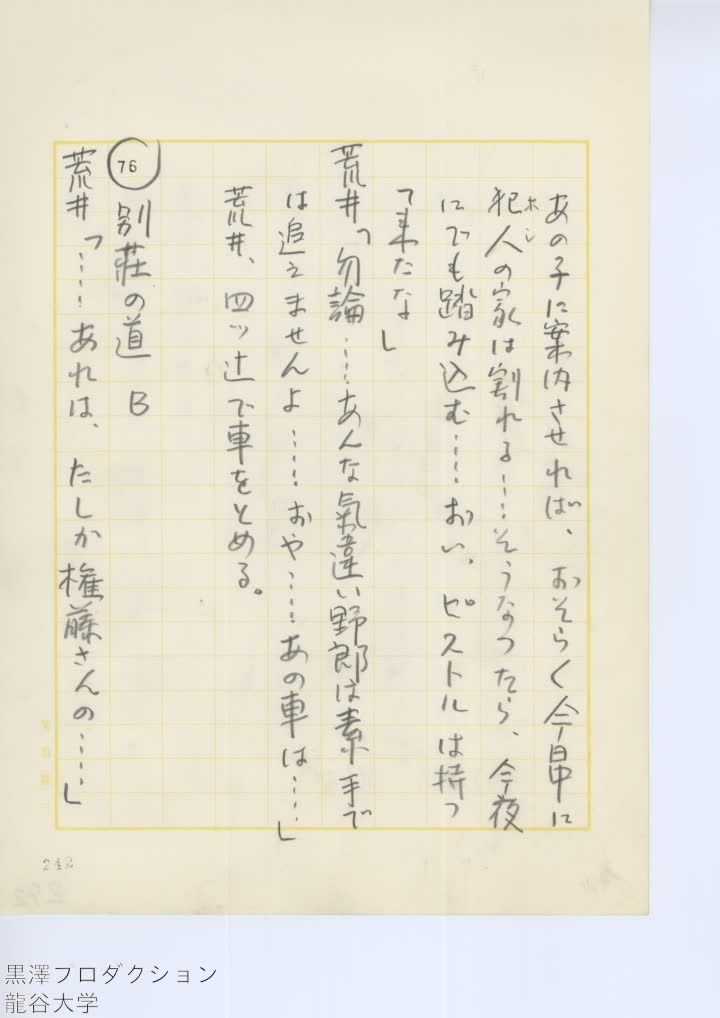 あの子に案内させれば、おそらく今日中に
犯人の家は割れる……そうなつたら、今夜
ホシ
にでも踏み込む……おい、ピストルは持つ
て来たな」
荒井「勿論……あんな氣違い野郎は素手で
は追えませんよ……おや……あの車は……」
荒井、四ツ辻で車をとめる。
76 別荘の道 B
荒井「……あれは、たしか権藤さんの……」
242
黒澤プロダクション
龍谷大学